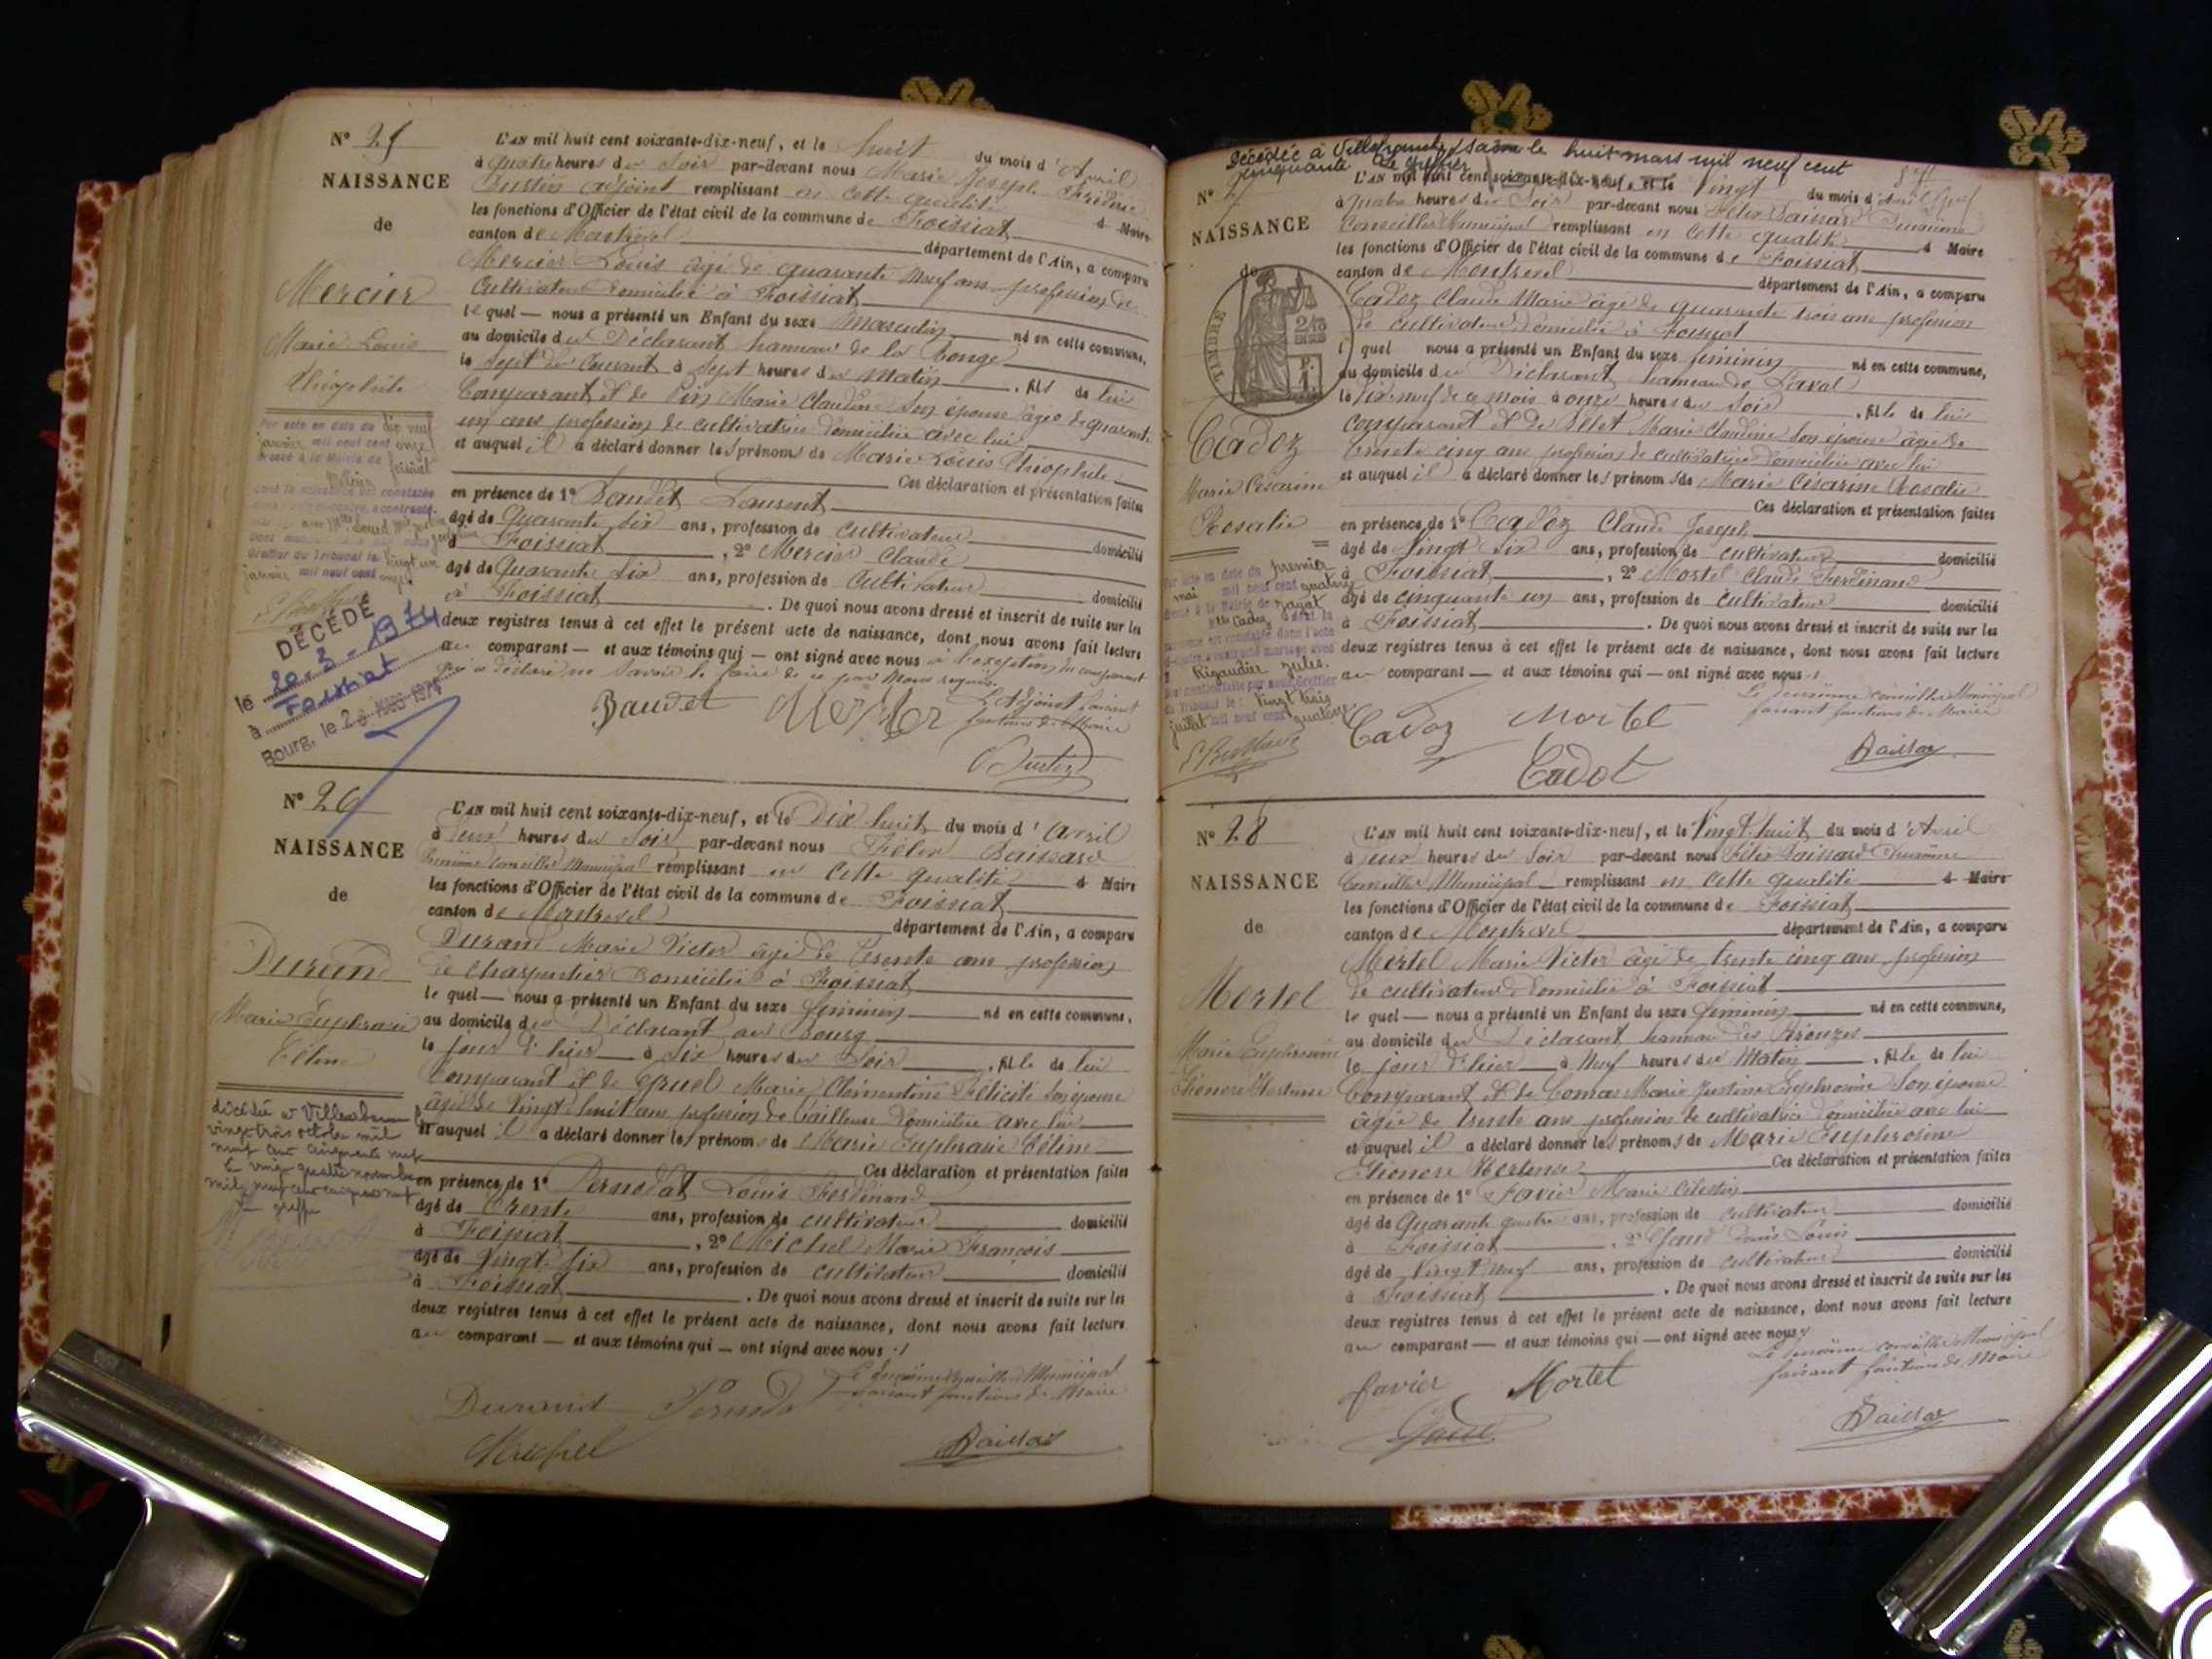 N° 25
NAISSANCE
de
Mercier
Marie Louis
Théophile
Par acte en date du dix neuf
janvier mil neuf cent onze
dressé à la Mairie de Foissiat
dont la naissance est constatée
Greffier du Tribunal le vingt un
janvier mil neuf cent onze
DÉCÉDÉ
le 20-3-1974
à Foissiat
Bourg, le 26 MARS 1974
L'AN mil huit cent soixante-dix-neuf, et le huit du mois d'Avril
à quatre heures du Soir par-devant nous Marie Joseph Frédéric
Bustin adjoint remplissant en cette qualité
les fonctions d'Officier de l'état civil de la commune de Foissiat d Maire
canton de Montrevel département de l'Ain, a comparu
Mercier Louis âgé de quarante neuf ans profession de
Cultivateur domicilié à Foissiat
le quel — nous a présenté un Enfant du sexe Masculin né en cette commune,
au domicile du Déclarant hameau de la
le Sept du Courant à Sept heures du Matin , fils de lui
Comparant et de Pin Marie Claudine Son épouse âgée de quarante
un ans profession de cultivatrice domiciliée avec lui
et auquel il a déclaré donner les prénoms de Marie Louis Théophile
Ces déclaration et présentation faites
en présence de 1° Baudet Laurent
âgé de Quarante Six ans, profession de Cultivateur domicilié
à Foissiat , 2° Mercier Claude
âgé de Quarante Six ans, profession de Cultivateur domicilié
à Foissiat . De quoi nous avons dressé et inscrit de suite sur les
deux registres tenus à cet effet le présent acte de naissance, dont nous avons fait lecture
au comparant — et aux témoins qui — ont signé avec nous à l'exception du comparant
qui a déclaré ne Savoir le faire de ce par Nous requis
Baudet Mercier L'Adjoint faisant
fonctions de Maire
N° 26
NAISSANCE
de
Durand
Marie Euphrasie
Céline
décédée à Villeurbanne
vingt trois octobre mil
neuf cent cinquante neuf
le vingt quatre novembre
mil neuf cent cinquante neuf
Le greffier
L'AN mil huit cent soixante-dix-neuf, et le Dix huit du mois d'Avril
à deux heures du Soir par-devant nous Félix Baissard
Deuxième Conseiller Municipal remplissant en Cette qualité d Maire
les fonctions d'Officier de l'état civil de la commune de Foissiat
canton de Montrevel département de l'Ain, a comparu
Durand Marie Victor âgé de trente ans profession
de Charpentier domicilié à Foissiat
le quel — nous a présenté un Enfant du sexe féminin né en cette commune,
au domicile du Déclarant au Bourg
le jour d'hier à Six heures du Soir , fille de lui
Comparant et de Gruel Marie Clémentine Félicité Son épouse
âgée de Vingt huit ans profession de Tailleuse domiciliée avec lui
et auquel il a déclaré donner les prénoms de Marie Euphrasie Céline
Ces déclaration et présentation faites
en présence de 1° Pernodat Louis Ferdinand
âgé de Trente ans, profession de cultivateur domicilié
à Foissiat , 2° Michel Marie François
âgé de Vingt Six ans, profession de cultivateur domicilié
à Foissiat . De quoi nous avons dressé et inscrit de suite sur les
deux registres tenus à cet effet le présent acte de naissance, dont nous avons fait lecture
au comparant — et aux témoins qui — ont signé avec nous
Le deuxième Conseiller Municipal
faisant fonctions de Maire
Durand
Michel Baissard
Décédée à Villefranche s/ Saône le huit mars mil neuf cent
cinquante Le Greffier
N°
NAISSANCE
de
TIMBRE
Cadoz
Marie Césarine
Rosalie
Par acte en date du premier
mai mil neuf cent quatorze
dressé à la Mairie de Jayat
Mlle Cadoz dont la
naissance est constatée dans l'acte
ci-contre a contracté mariage avec
Rigaudier Jules.
Sur mention faite par nous Greffier
du Tribunal le vingt trois
juillet mil neuf cent quatorze
L'AN mil huit cent soixante-dix-neuf, et le Vingt du mois d'Avril
à quatre heures du Soir par-devant nous Félix Baissard Deuxième
Conseiller Municipal remplissant en Cette qualité d Maire
les fonctions d'Officier de l'état civil de la commune de Foissiat
canton de Montrevel département de l'Ain, a comparu
Cadoz Claude Marie âgé de quarante trois ans profession
de cultivateur domicilié à Foissiat
le quel nous a présenté un Enfant du sexe féminin né en cette commune,
au domicile du Déclarant hameau de Laval
le Dix neuf de ce mois à onze heures du Soir , fille de lui
Comparant et de Marie Claudine Son épouse âgée de
trente cinq ans profession de cultivatrice domiciliée avec lui
et auquel il a déclaré donner les prénoms de Marie Césarine Rosalie
Ces déclaration et présentation faites
en présence de 1° Cadoz Claude Joseph
âgé de Vingt Six ans, profession de cultivateur domicilié
à Foissiat , 2° Mortel Claude Ferdinand
âgé de cinquante un ans, profession de cultivateur domicilié
à Foissiat . De quoi nous avons dressé et inscrit de suite sur les
deux registres tenus à cet effet le présent acte de naissance, dont nous avons fait lecture
au comparant — et aux témoins qui — ont signé avec nous
Le deuxième conseiller Municipal
faisant fonctions de Maire
Cadoz Mortel
Cadot Baissard
N° 28
NAISSANCE
de
Mortel
Marie Euphrosine
Eléonore Hortense
L'AN mil huit cent soixante-dix-neuf, et le Vingt-huit du mois d'Avril
à deux heures du Soir par-devant nous Félix Baissard Deuxième
Conseiller Municipal remplissant en Cette qualité d Maire
les fonctions d'Officier de l'état civil de la commune de Foissiat
canton de Montrevel département de l'Ain, a comparu
Mortel Marie Victor âgé de trente cinq ans profession
de cultivateur domicilié à Foissiat
le quel — nous a présenté un Enfant du sexe féminin né en cette commune,
au domicile du Déclarant hameau des
le jour d'hier à Neuf heures du Matin , fille de lui
Comparant et de Comas Marie Justine Euphrosine Son épouse
âgée de trente ans profession de cultivatrice domiciliée avec lui
et auquel il a déclaré donner les prénoms de Marie Euphrosine
Eléonore Hortense Ces déclaration et présentation faites
en présence de 1° Favier Marie Célestin
âgé de Quarante quatre ans, profession de cultivateur domicilié
à Foissiat , 2° Louis
âgé de Vingt Neuf ans, profession de cultivateur domicilié
à Foissiat . De quoi nous avons dressé et inscrit de suite sur les
deux registres tenus à cet effet le présent acte de naissance, dont nous avons fait lecture
au comparant — et aux témoins qui — ont signé avec nous
Le deuxième conseiller Municipal
faisant fonctions de Maire
Favier Mortel
Baissard